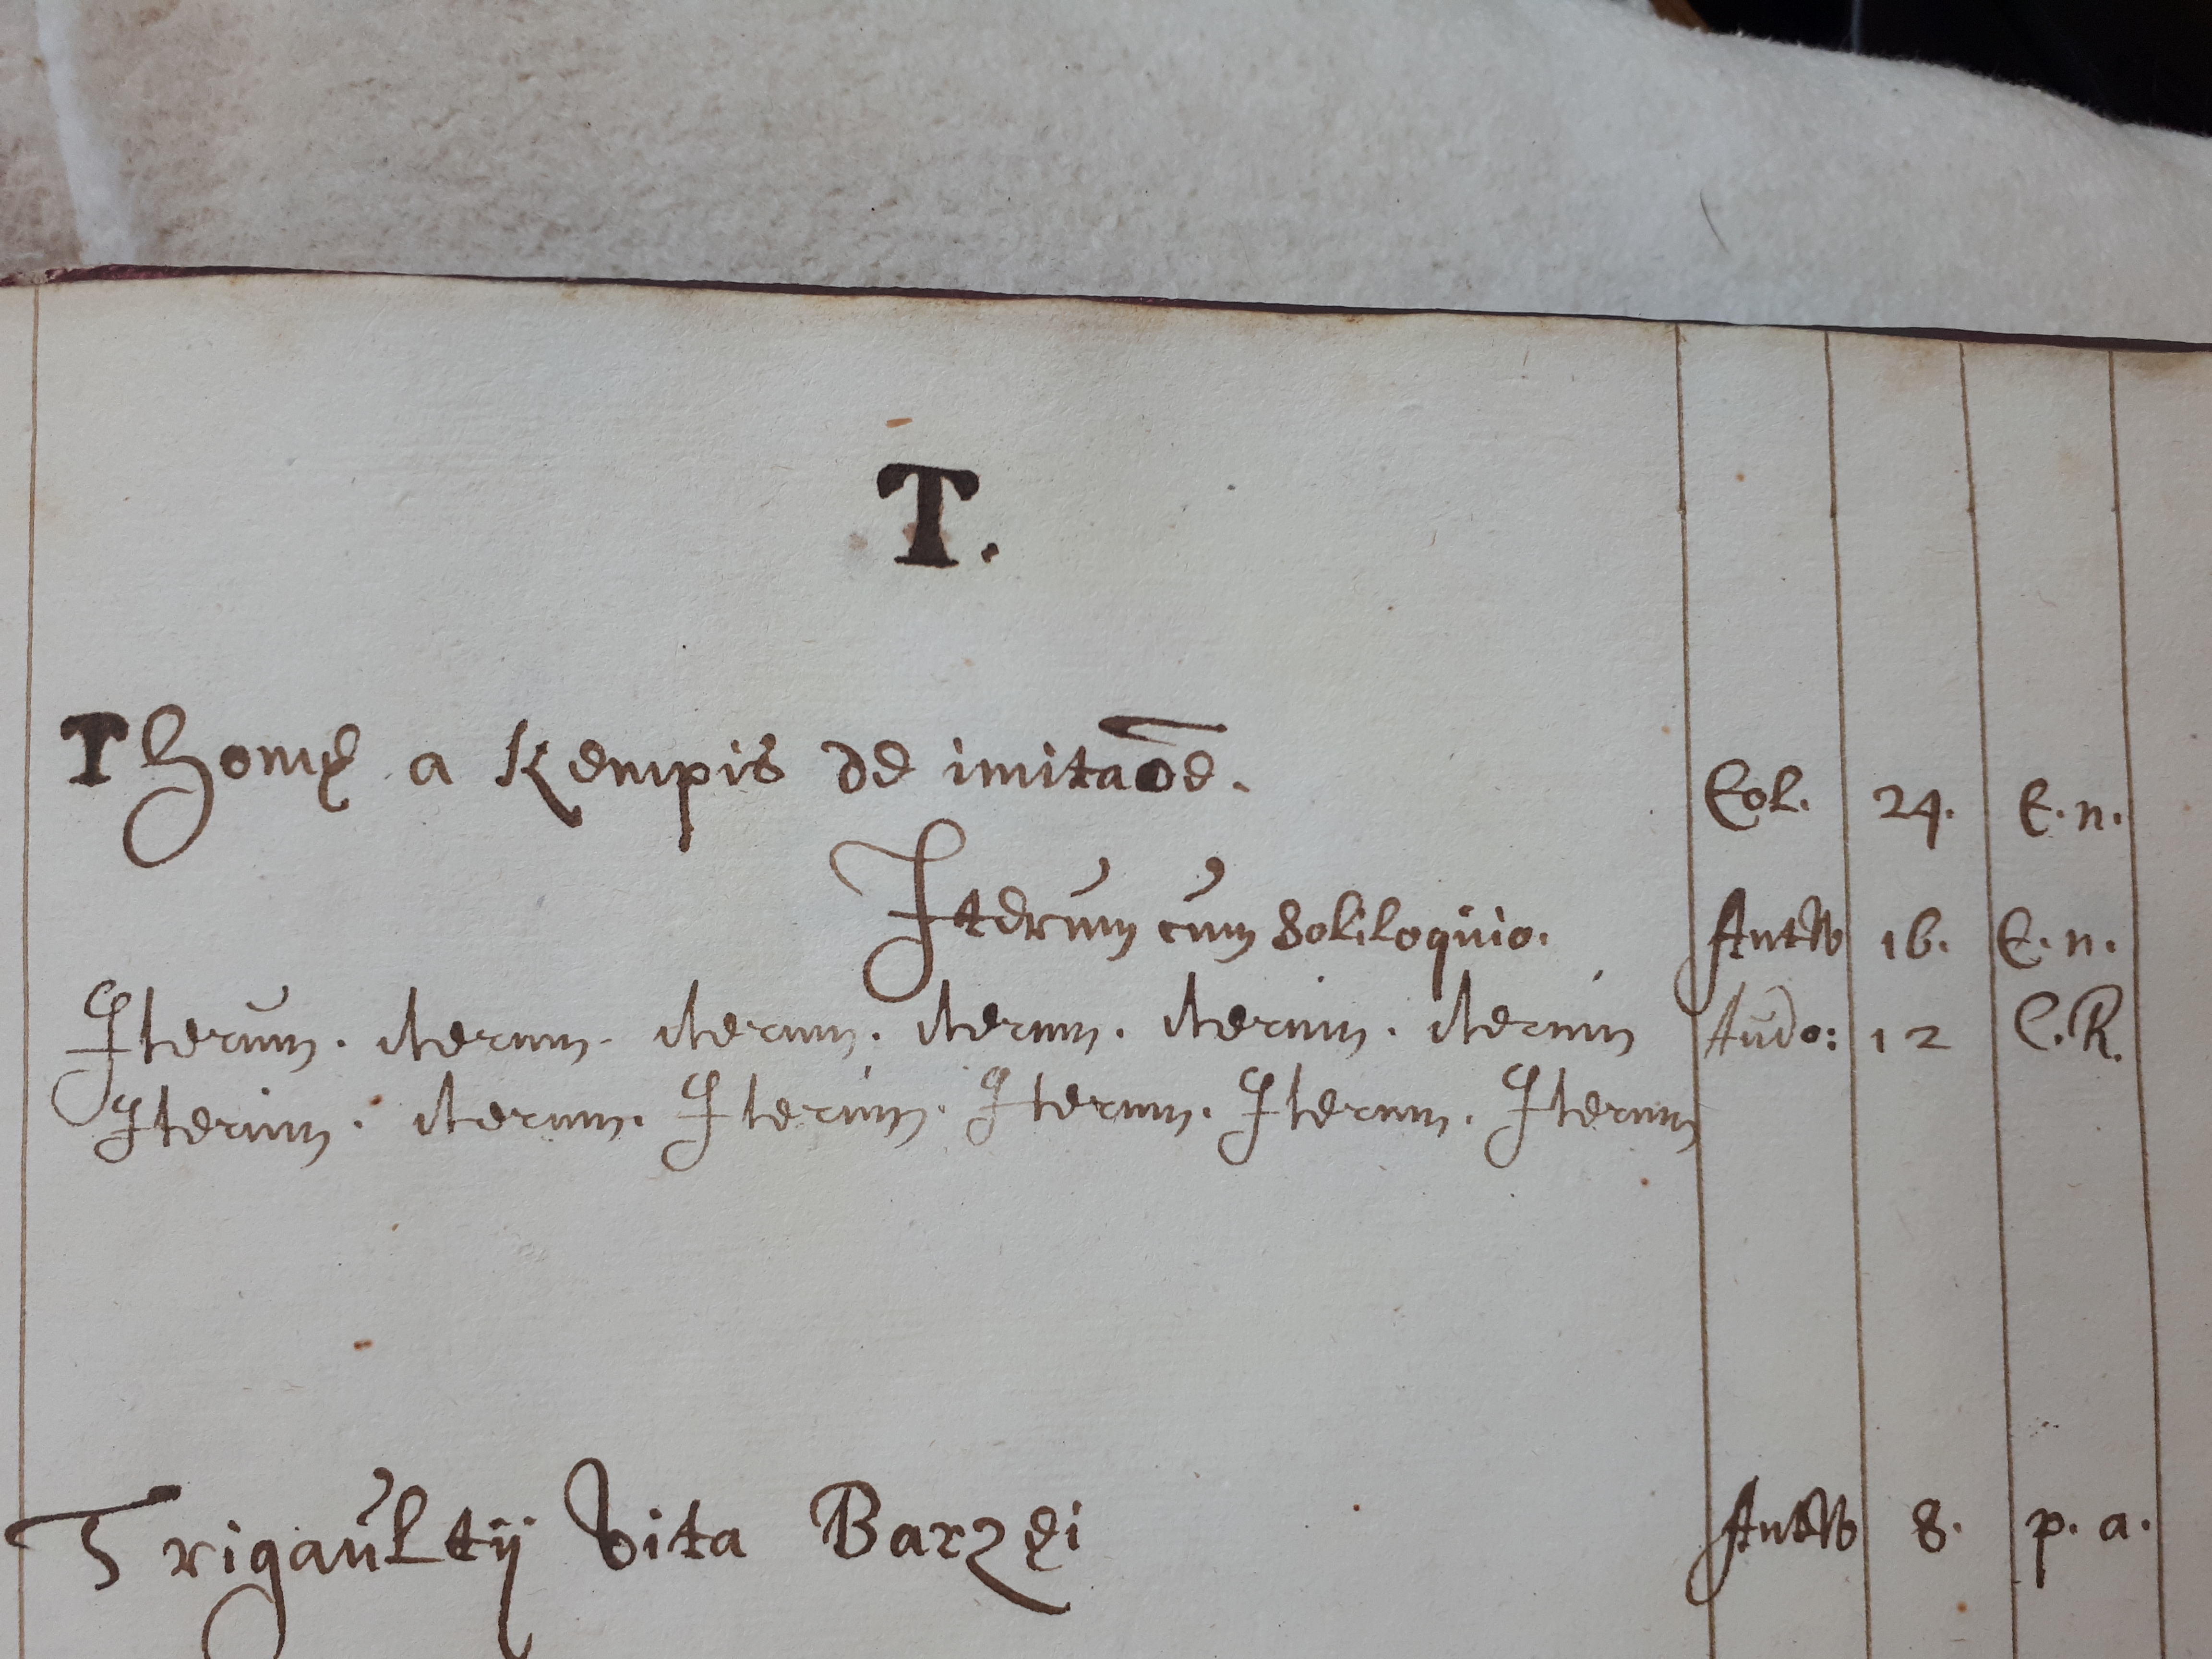 T.
Thomę a Kempis de imitaōe. Col. 24. E. n.
Iterum cum soliloquio. Antw 16. E. n.
Iterum. iterum. iterum. iterum. iterum. iterum Audo: 12 C. R.
Iterum. iterum. Iterum. Iterum. Iterum. Iterum
Trigaultij Vita Barzęi Antw 8. p. a.